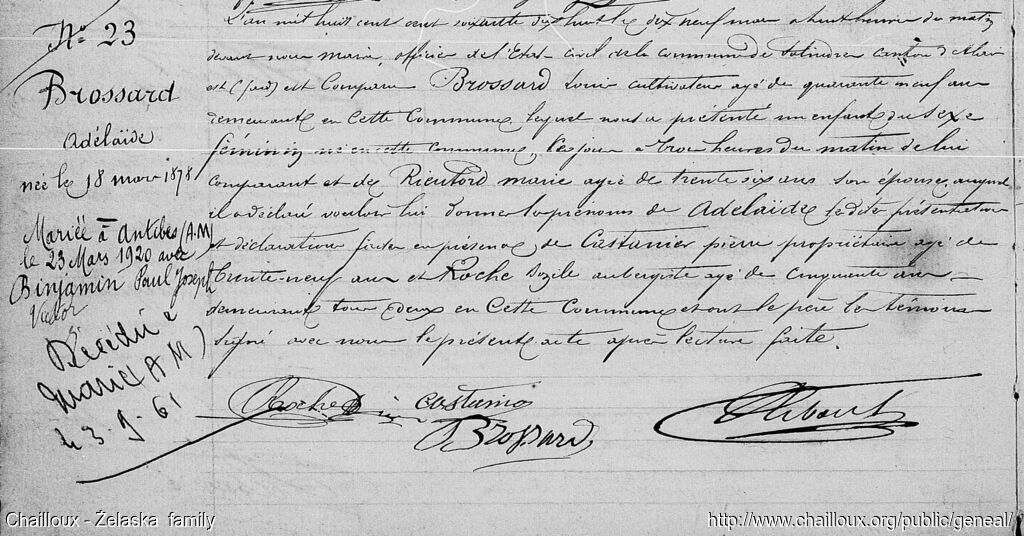 N° 23
Brossard
Adélaïde
née le 18 mars 1878
Mariée à Antibes (A.M)
le 23 Mars 1920 avec
Binjamin Paul Joseph
Victor
Décédée
(A M)
L'an mil huit cent soixante dix huit le dix neuf mars a huit heures du matin
devant nous maire, officier de l'Etat civil de la commune de canton d'Alais
est (Gard) est comparu Brossard Louis cultivateur agé de quarante neuf ans
demeurant en cette commune, lequel nous a présenté un enfant du sexe
féminin né en cette commune, le jour a trois heures du matin de lui
comparant et de Rieutord marie agée de trente six ans son épouse, auquel
il a déclaré vouloir lui donner le prénoms de Adelaïde Lesdites présentation
et déclaration faites en présence, de Castanier pierre propriétaire agé de
trente-neuf ans et Roche aubergiste agé de cinquante ans
demeurant tous deux en cette commune et ont le père les témoins
signé avec nous le présent acte apres lecture faite.
Roche
Brossard
Chailloux - Żelaska family
http://www.chailloux.org/public/geneal/